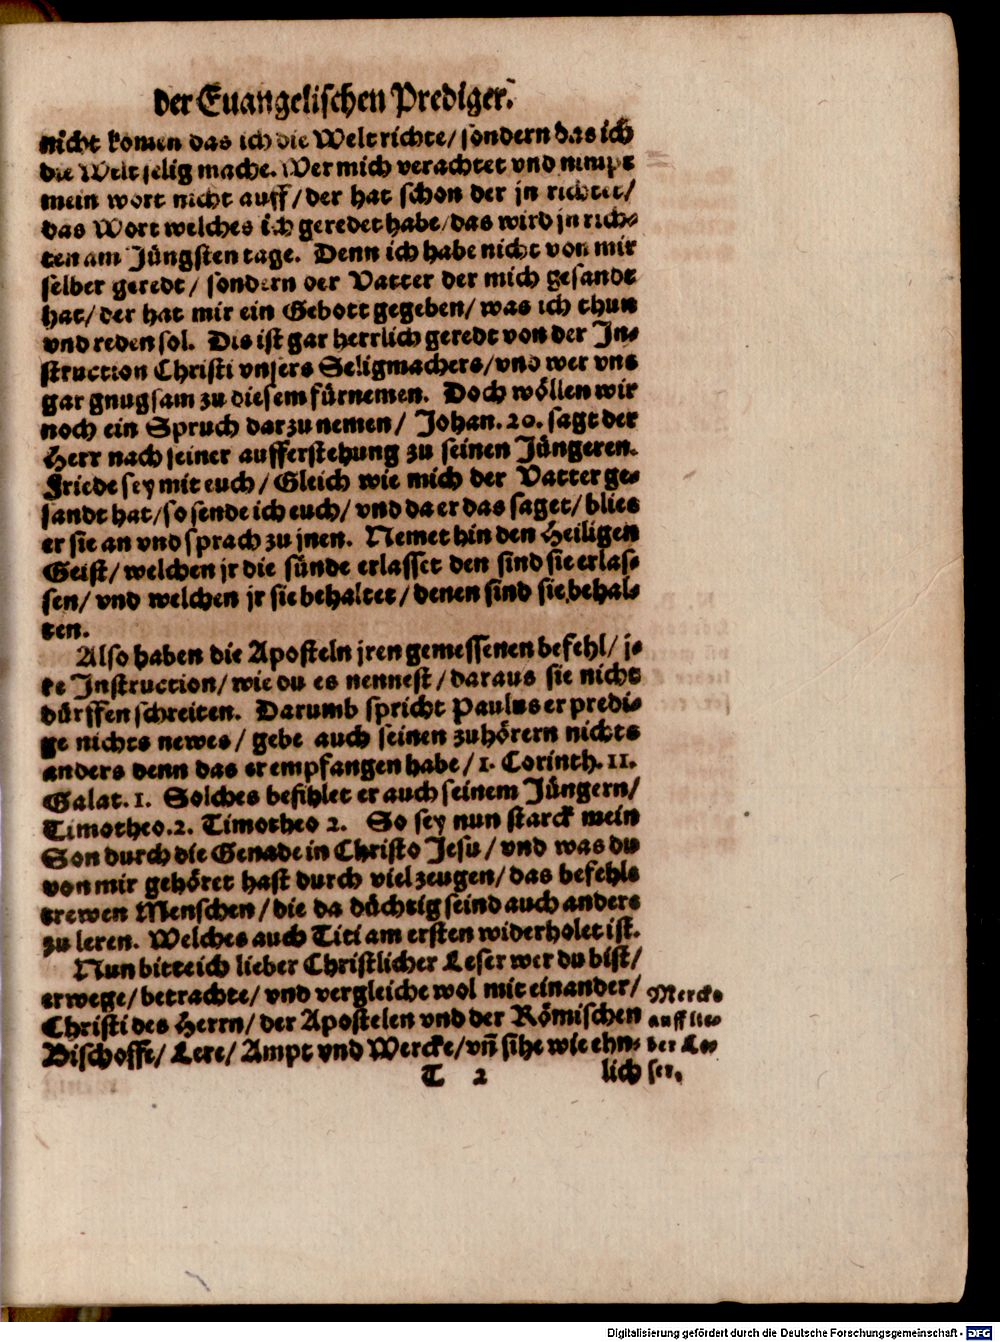 der Euangelischen Prediger.
nicht komen das ich die Welt richte/ sondern das ich
die Welt selig mache. Wer mich verachtet vnd nimpt
mein wort nicht auff/ der hat schon der jn richtet/
das Wort welches ich geredet habe/ das wird jn rich-
ten am Jüngsten tage. Denn ich habe nicht von mir
selber geredt/ sondern der Vatter der mich gesandt
hat/ der hat mir ein Gebott gegeben/ was ich thun
vnd reden sol. Dis ist gar herrlich geredt von der In-
struction Christi vnsers Seligmachers/ vnd wer vns
gar gnugsam zu diesem fürnemen. Doch wöllen wir
noch ein Spruch darzu nemen/ Johan. 20. sagt der
Herr nach seiner aufferstehung zu seinen Jüngeren.
Friede sey mit euch/ Gleich wie mich der Vatter ge-
sandt hat/ so sende ich euch/ vnd da er das saget/ blies
er sie an vnd sprach zu jnen. Nemet hin den Heiligen
Geist/ welchen jr die sünde erlasset den sind sie erlas-
sen/ vnd welchen jr sie behaltet/ denen sind sie behal-
ten.
Also haben die Aposteln jren gemessenen befehl/ je-
re Instruction/ wie du es nennest/ daraus sie nicht
dürffen schreiten. Darumb spricht Paulus er predi-
ge nichts newes/ gebe auch seinen zuhörern nichts
anders denn das er empfangen habe/ 1. Corinth. 11.
Galat. 1. Solches befihlet er auch seinem Jüngern/
Timotheo. 2. Timotheo 2. So sey nun starck mein
Son durch die Genade in Christo Jesu/ vnd was du
von mir gehöret hast durch viel zeugen/ das befehle
trewen Menschen/ die da düchtig seind auch anders
zu leren. Welches auch Titi am ersten widerholet ist.
Nun bitte ich lieber Christlicher Leser wer du bist/
erwege/ betrachte/ vnd vergleiche wol mit einander/
Christi des Herrn/ der Apostelen vnd der Römischen
Bischoffe/ Lere/ Ampt vnd Wercke/ vñ sihe wie ehn-
T 2 lich
Mercke
auff lie-
ber Le-
ser.
Digitalisierung gefördert durch die Deutsche Forschungsgemeinschaft - DFG